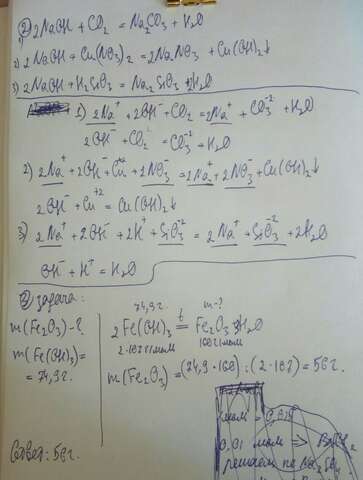 ② 2NaOH + CO₂ = Na₂CO₃ + H₂O
2) 2NaOH + Cu(NO₃)₂ = 2NaNO₃ + Cu(OH)₂↓
3) 2NaOH + H₂SiO₃ = Na₂SiO₃ + 2H₂O
1) 2Na⁺ + 2OH⁻ + CO₂ = 2Na⁺ + CO₃⁻² + H₂O
2OH⁻ + CO₂ = CO₃⁻² + H₂O
2) 2Na⁺ + 2OH⁻ + Cu⁺² + 2NO₃⁻ = 2Na⁺ + 2NO₃⁻ + Cu(OH)₂↓
2OH⁻ + Cu⁺² = Cu(OH)₂↓
3) 2Na⁺ + 2OH⁻ + 2H⁺ + SiO₃⁻² = 2Na⁺ + SiO₃⁻² + 2H₂O
OH⁻ + H⁺ = H₂O
③ задача:
m(Fe₂O₃) - ?
m(Fe(OH)₃) =
= 74,9 г.
74,9 г. m - ?
2Fe(OH)₃ =t Fe₂O₃ + 3H₂O
m(Fe₂O₃) = (74,9 · 160) : (2 · 107) = 56 г.
Ответ: 56 г.
решаем по